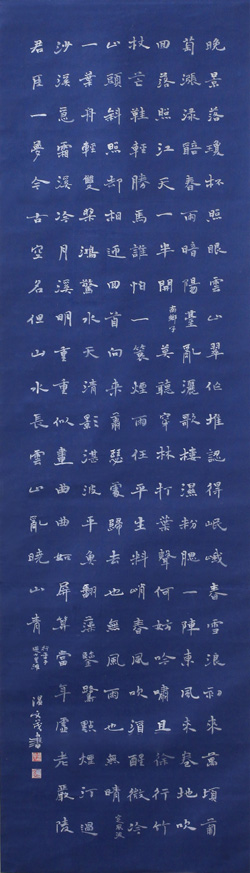 晚景落瓊杯照眼雲山翠作堆認得岷峨春雪浪初來萬頃蒲
萄漲淥醅春雨暗陽臺亂灑歌樓濕粉腮一陣東風來卷地吹
回落照江天一半開南鄉子莫聽穿林打葉聲何妨吟嘯且徐行竹
杖芒鞋輕勝馬誰怕一蓑煙雨任平生料峭春風吹酒醒微冷
山頭斜照卻相迎回首向來蕭瑟處歸去也無風雨也無晴定風波
一葉舟輕雙槳鴻驚水天清影湛波平魚翻藻鑒鷺點煙汀過
沙溪急霜溪冷月溪明重重似畫曲曲如屏算當年虛老嚴陵
君臣一夢今古空名但山水長雲山亂曉山青行香子過七里灘